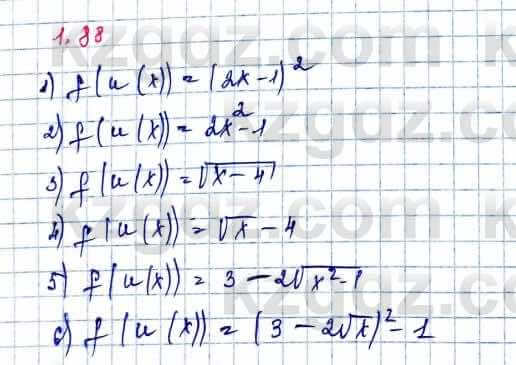 1.88
1) f(u(x)) = (2x-1)²
2) f(u(x)) = 2x²-1
3) f(u(x)) = √(x-4)
4) f(u(x)) = √x - 4
5) f(u(x)) = 3 - 2√(x²-1)
6) f(u(x)) = (3 - 2√x)² - 1
kzgdz.com